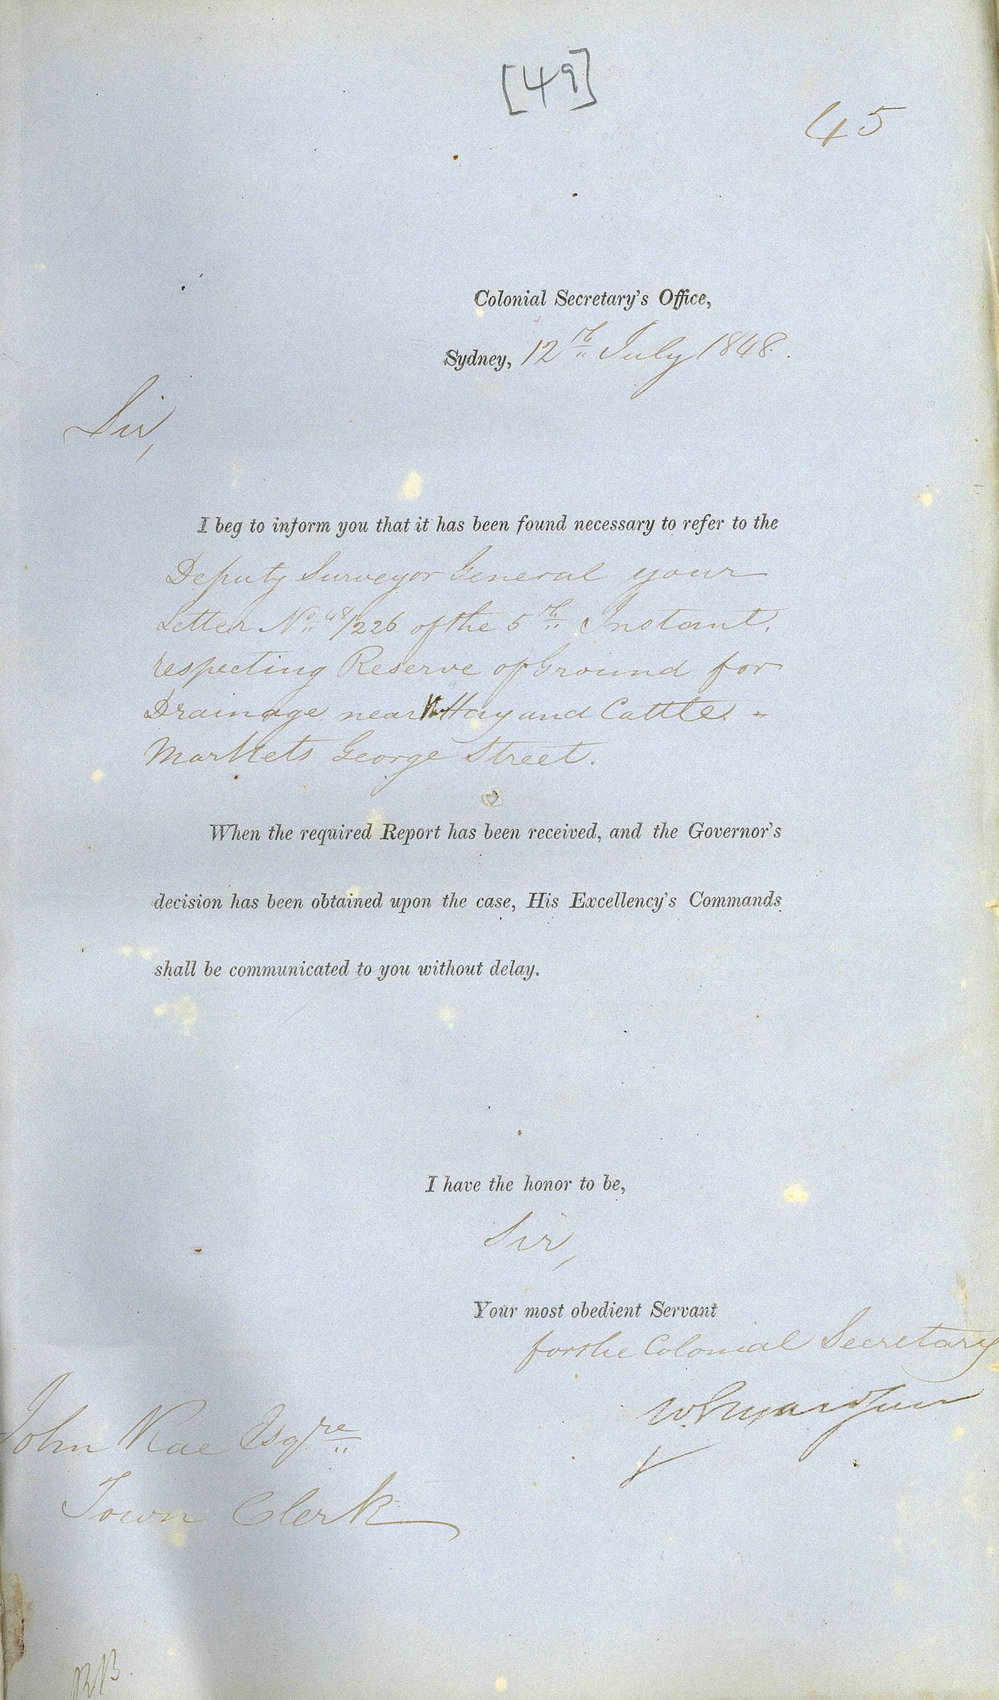 [49]
45
Colonial Secretary's Office,
Sydney, 12th July 1848.
Sir,
I beg to inform you that it has been found necessary to refer to the
Deputy Surveyor General your
Letter No. 48/226 of the 5th Instant,
respecting Reserve of Ground for
Drainage near Hay and Cattle
Markets George Street.
When the required Report has been received, and the Governor's
decision has been obtained upon the case, His Excellency's Commands
shall be communicated to you without delay.
I have the honor to be,
Sir,
Your most obedient Servant
for the Colonial Secretary
John Rae Esqre
Town Clerk